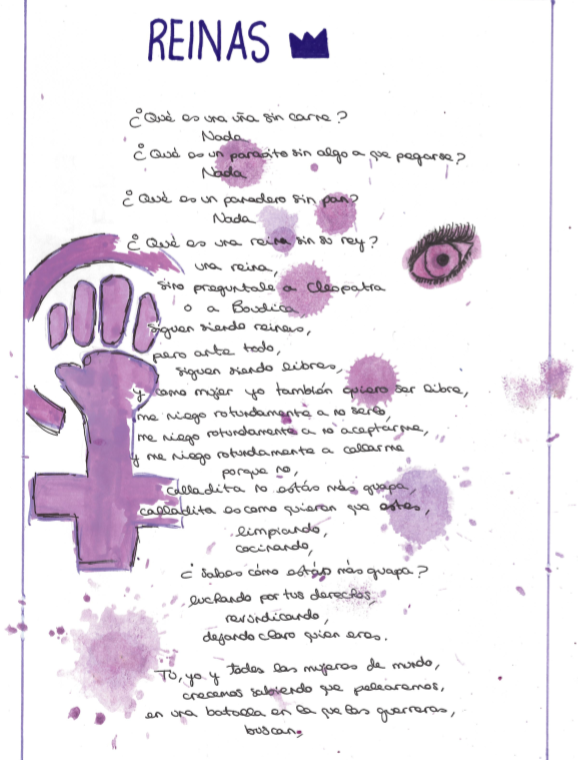 REINAS
¿Qué es una uña sin carne?
Nada
¿Qué es un parasito sin algo a que pegarse?
Nada
¿Qué es un panadero sin pan?
Nada
¿Qué es una reina sin su rey?
una reina,
sino preguntale a Cleopatra
o a Boudica
siguen siendo reinas,
pero ante todo,
siguen siendo libres,
y como mujer yo también quiero ser libre,
me niego rotundamente a no serlo,
me niego rotundamente a no aceptarme,
y me niego rotundamente a callarme
porque no,
calladita no estás más guapa,
calladita es como quieren que estes,
limpiando,
cocinando,
¿Sabes cómo estás más guapa?
luchando por tus derechos,
reivindicando,
dejando claro quien eres.
Tú, yo y todas las mujeres de mundo,
crecemos sabiendo que pelearemos,
en una batalla en la que las guerreras,
buscan,